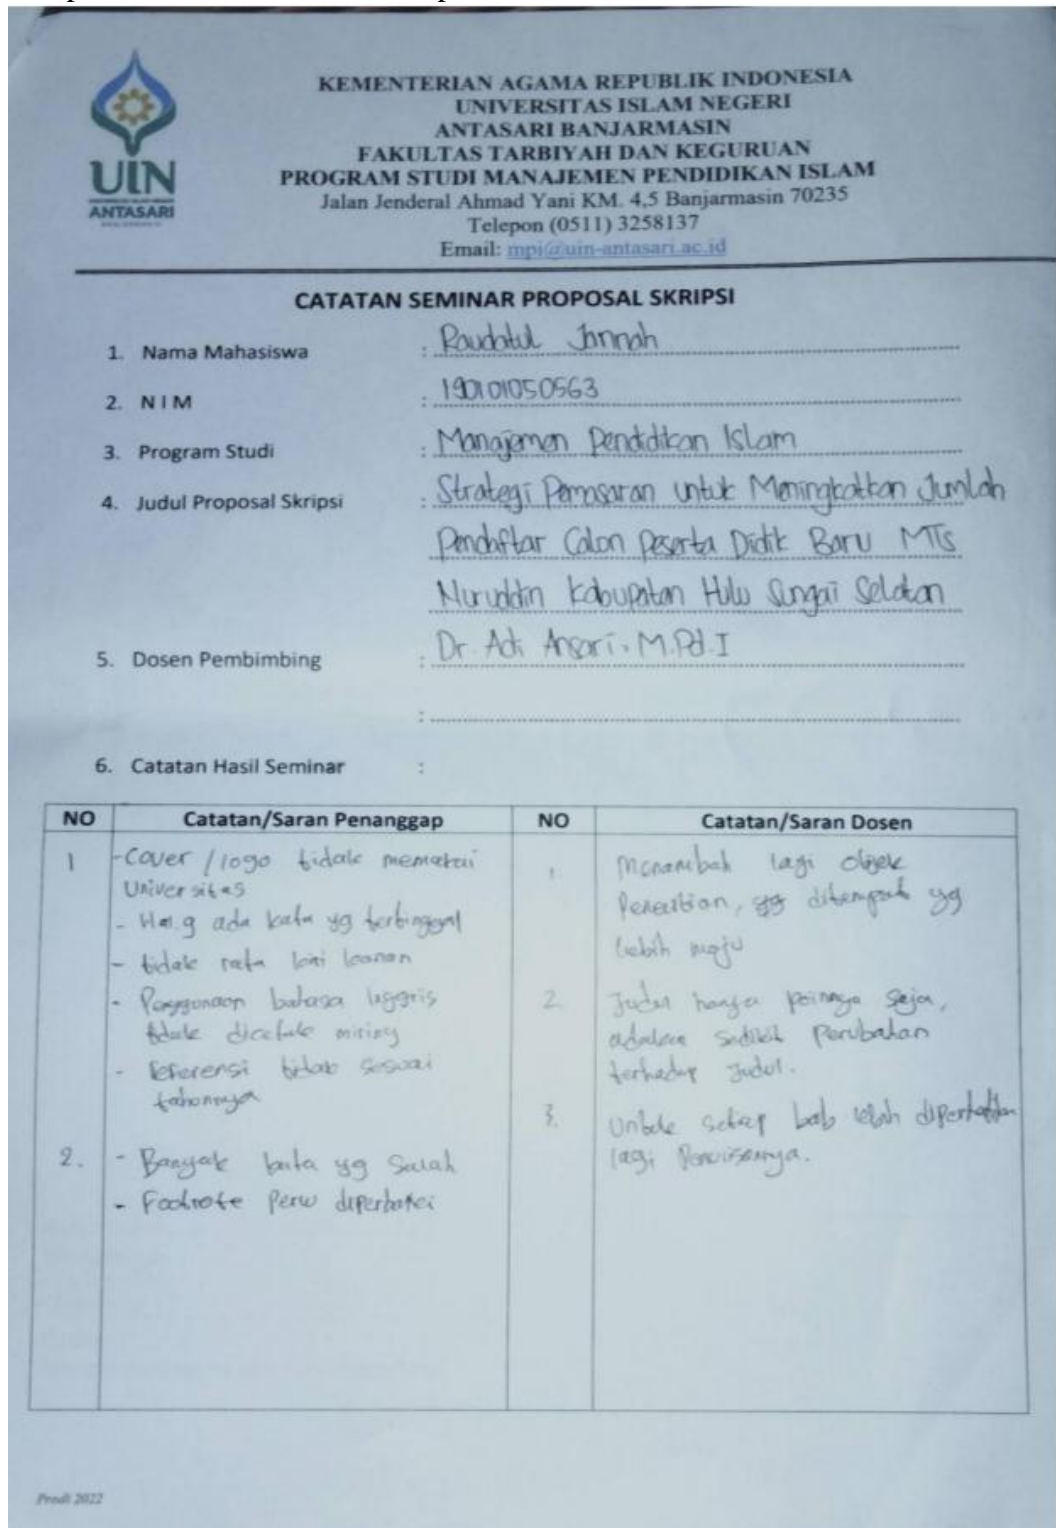 UIN
ANTASARI
KEMENTERIAN AGAMA REPUBLIK INDONESIA
UNIVERSITAS ISLAM NEGERI
ANTASARI BANJARMASIN
FAKULTAS TARBIYAH DAN KEGURUAN
PROGRAM STUDI MANAJEMEN PENDIDIKAN ISLAM
Jalan Jenderal Ahmad Yani KM. 4,5 Banjarmasin 70235
Telepon (0511) 3258137
Email: mpi@uin-antasari.ac.id
CATATAN SEMINAR PROPOSAL SKRIPSI
1. Nama Mahasiswa : Raudatul Jannah
2. N I M : 190101050563
3. Program Studi : Manajemen Pendidikan Islam
4. Judul Proposal Skripsi : Strategi Pemasaran untuk Meningkatkan Jumlah
Pendaftar Calon Peserta Didik Baru MTs
Nuruddin Kabupaten Hulu Sungai Selatan
5. Dosen Pembimbing : Dr. Adi Ansari, M.Pd.I
:
6. Catatan Hasil Seminar :
NO Catatan/Saran Penanggap
1 - Cover / logo tidak memakai
Universitas
- Hal. 9 ada kata yg tertinggal
- tidak rata kiri kanan
- Penggunaan bahasa Inggris
tidak dicetak miring
- referensi tidak sesuai
tahunnya
2. - Banyak kata yg salah
- Footnote perlu diperbaiki
NO Catatan/Saran Dosen
1. Menambah lagi objek
Penelitian, yg ditempat yg
lebih maju
2. Judul hanya poinnya saja,
sedikit Perubahan
terhadap Judul.
3. Untuk setiap bab lebih diperhatikan
lagi Penulisannya.
Prodi 2022